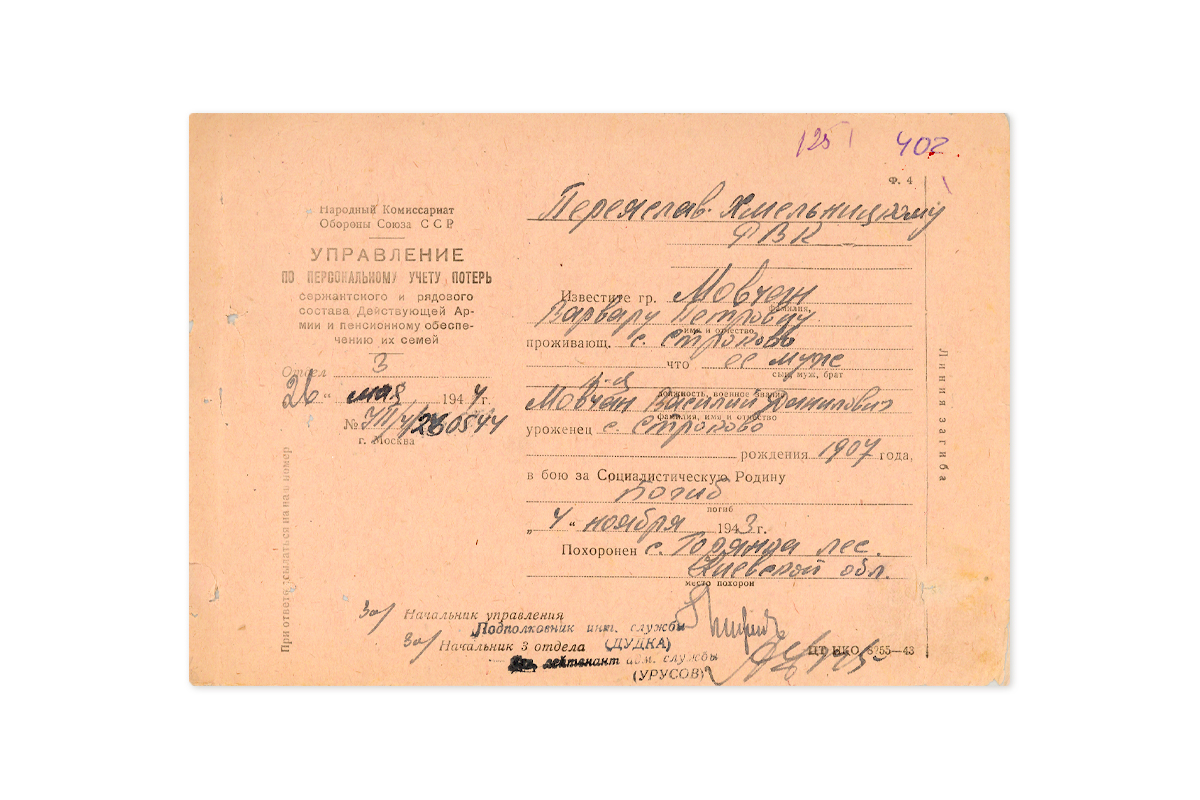 125 402
Ф. 4
Народный Комиссариат
Обороны Союза ССР
УПРАВЛЕНИЕ
ПО ПЕРСОНАЛЬНОМУ УЧЕТУ ПОТЕРЬ
сержантского и рядового
состава Действующей Ар-
мии и пенсионному обеспе-
чению их семей
Отдел 3
26 " мая 1944 г.
№
г. Москва
При ответе ссылаться на наш номер
Переяслав-Хмельницкому
РВК
Известите гр. Мовчан
фамилия,
Варвару Петровну
имя и отчество
проживающ. с. Строково
что ее муж
сын, муж, брат
р-ц
должность, военное звание
Мовчан Василий Данилович
фамилия, имя и отчество
уроженец с. Строково
рождения 1907 года,
в бою за Социалистическую Родину
погиб
погиб
„ 4 “ ноября 1943 г.
Похоронен с. лес.
Киевской обл.
место похорон
Линия загиба
За/ Начальник управления
Подполковник инт. службы
(ДУДКА)
За/ Начальник 3 отдела
лейтенант адм. службы
(УРУСОВ)
ЦТ НКО 5255—43